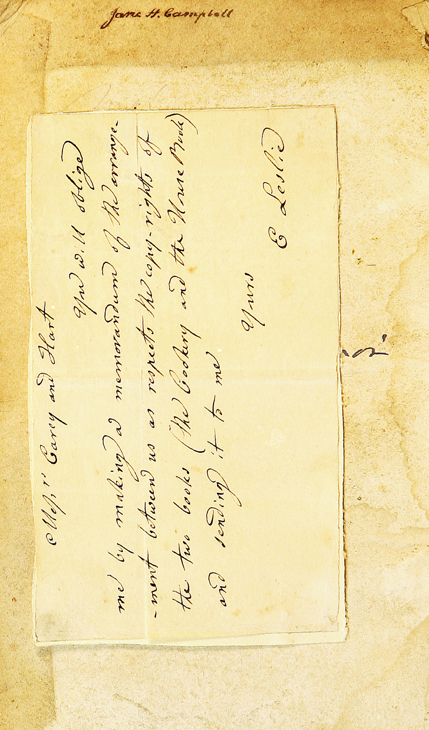 Jane H. Campbell
Messrs Carey and Hart
You will oblige
me by making a memorandum of the arrange-
-ment between us as respects the copy-rights of
the two books (the Cookery and the House Book)
and sending it to me
Yours
E Leslie